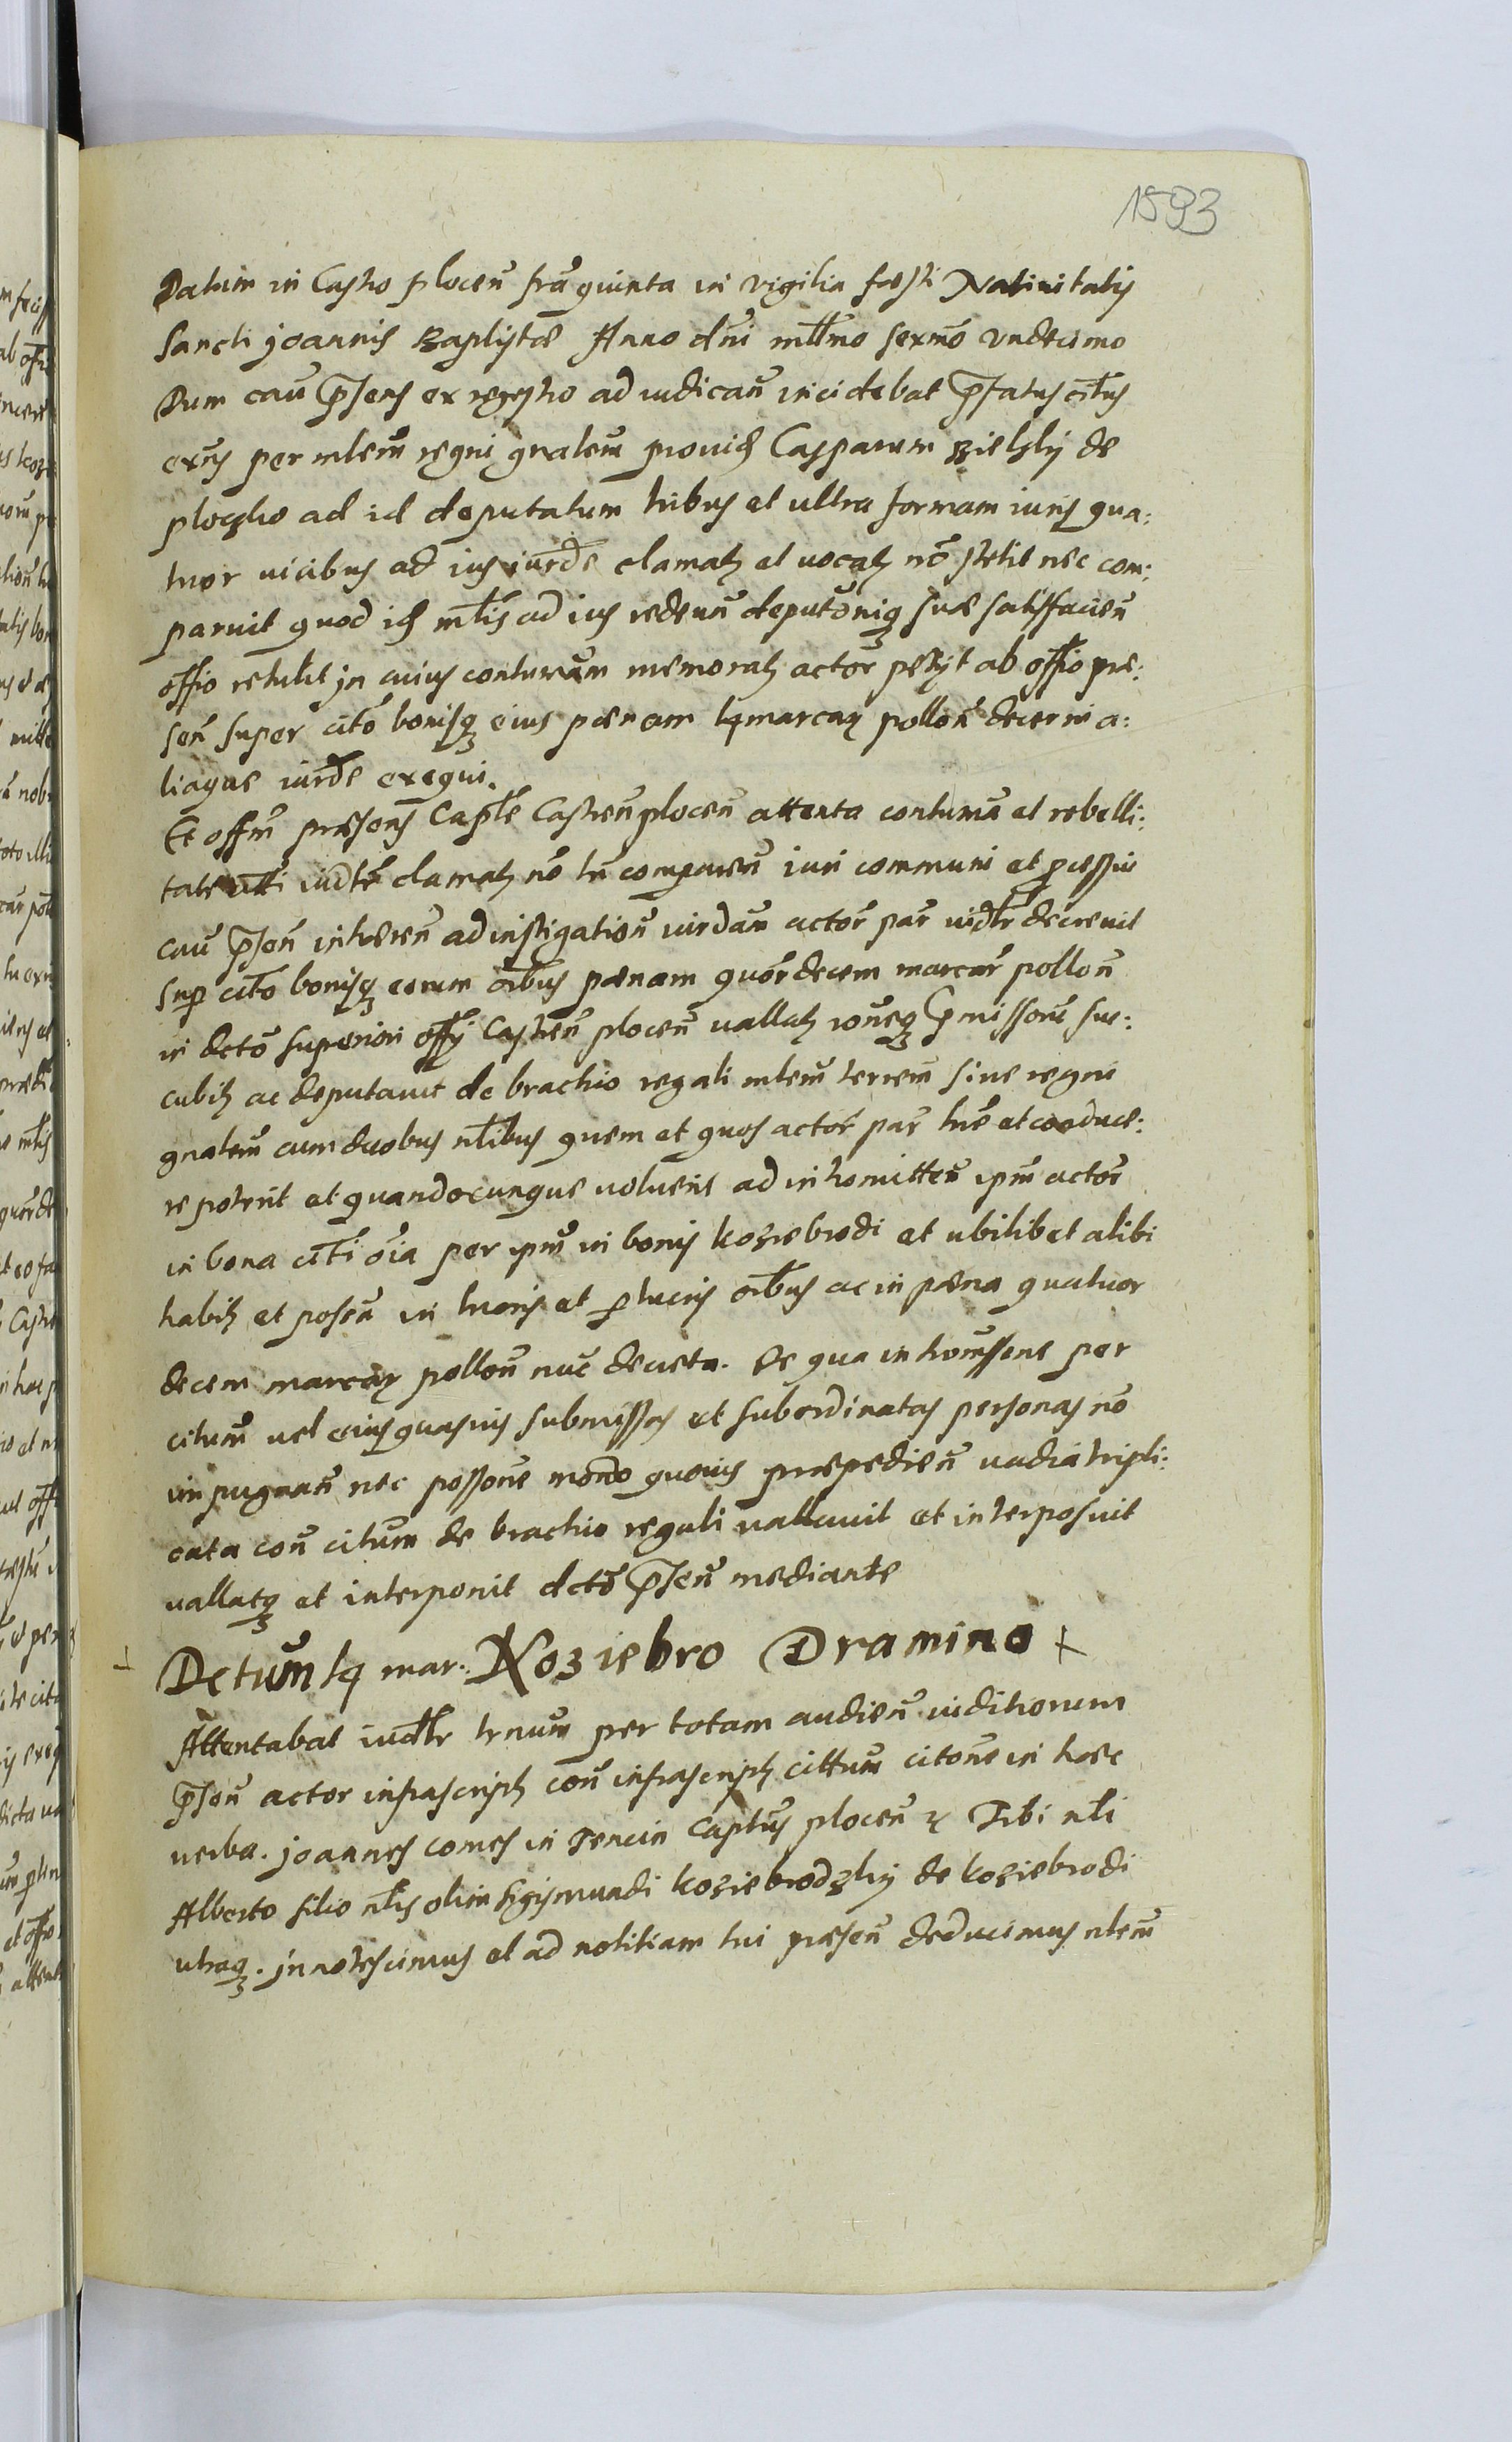 1593
Datum in Castro plocen̄ fr̄a quinta in vigilia fæsti Natiuitatis
Sancti Joannis Baptistæ Anno dn̄i mll̄mo sexm̄o vndecimo
Dum cau͞ p̄sens ex regestro ad iudican̄ incidebat p̄fatus cit̄us
exn̄s per mlem̄ regni gnalem̄ prouid Casparum Bielsky de
ploczko ad id deputatum tribus et ultra formam iuris qua:
tuor uicibus ad ius iurd̄e clamatz et uocatz nō stetit nec com:
paruit quod id ml̄is ad ius redeun̄ deputōniq3 suæ satisfacien̄
offīo retulit in cuius contumām memoratz actor petÿt ab offīo præ:
sen̄ super citō bonisq3 eius pænam 14 marcar pollon̄ decerni a:
liaque iurd̄e exequi.
Et offm̄ præsens Capl̄e Castren̄ plocen̄ attenta contumā et rebelli:
tate citti iud̄tr̄ clamatz nō tn̄ comparen̄ iuri communi et p̄cessui
cau͞ p̄sen̄ inhæren̄ ad instigation̄ iurdam̄ actor̄ par̄ iud̄tr̄ decreuit
sup cit̄o bonisq3 eorum oībus pænam quor̄decem marcar̄ pollon̄
in dctō superiori offÿ Castren̄ plocen̄ uallatz rōneq3 p̄missorū suc:
cubitz ac deputauit de brachio regali mlem̄ terrem̄ siue regni
gnalem̄ cum duobus nl̄ibus quem et quos actor̄ par̄ hr̄e et conduce:
re poterit et quandocunque uoluerit ad intromitten̄ ipm̄ actor̄
in bona cit̄i oīa per ipm̄ in bonis koziebrodi et ubilibet alibi
habitz et possesā in lucris et p̄lucris oībus ac in pæna quatuor
decem marcar pollon̄ nūc decreta. De qua intromissōne per
citum̄ uel eius quasuis submissas et subordinatas personas nō
impugnan̄ nec possōne modō quouis præpedien̄ uadia tripli:
cata con̄ citum̄ de brachio regali uallauit et interposuit
uallatq3 et interponit dctō p̄sen̄ mediante
Dctum̄ 14 mar. Koziebro Dramino
Attentabat iud̄tr̄ trnum̄ per totam audien̄ iuditiorum
p̄sen̄ actor infrascriptz con̄ infrascriptz cittum̄ citōne in hæc
uerba. Joannes comes in Tencin Captn̄s plocen̄ &c Tibi nl̄i
Alberto filio nl̄is olim Sigismundi koziebrodzky de koziebrodi
utraq3. Innotescimus et ad notitiam tui præsen̄ deducimus nlem̄